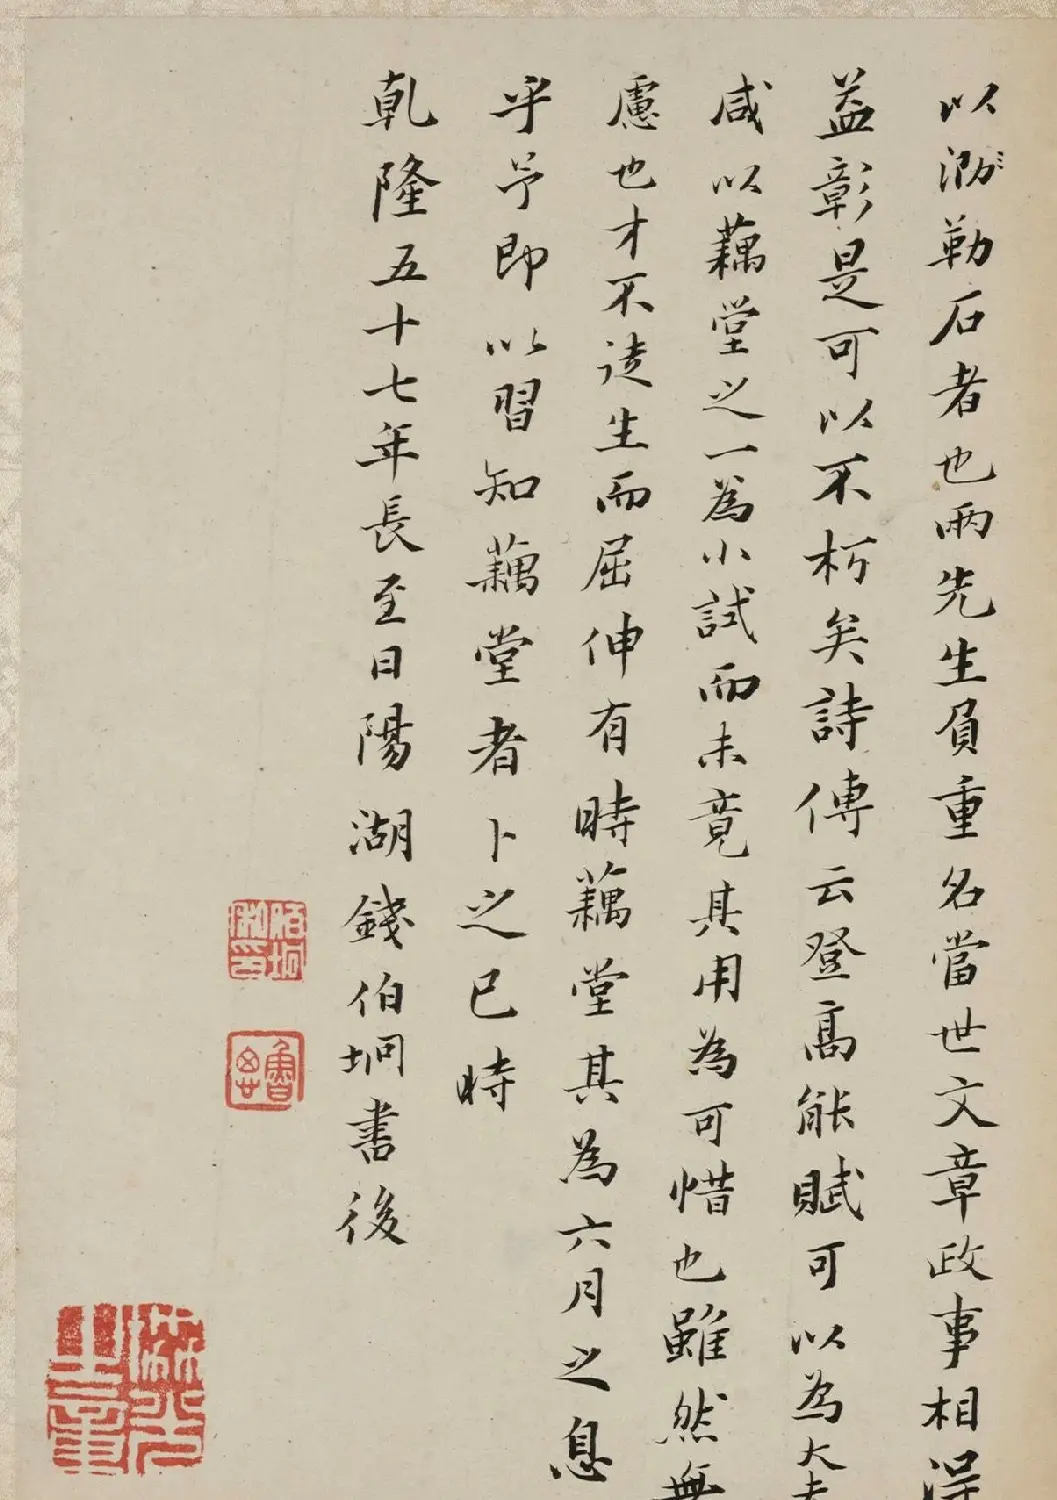 以泐勒石者也兩先生負重名當世文章政事相得
益彰是可以不朽矣詩傳云登高能賦可以為大夫
咸以藕堂之一為小試而未竟其用為可惜也雖然無
慮也才不徒生而屈伸有時藕堂其為六月之息
乎予即以習知藕堂者卜之已時
乾隆五十七年長至日陽湖錢伯坰書後
伯坰私印